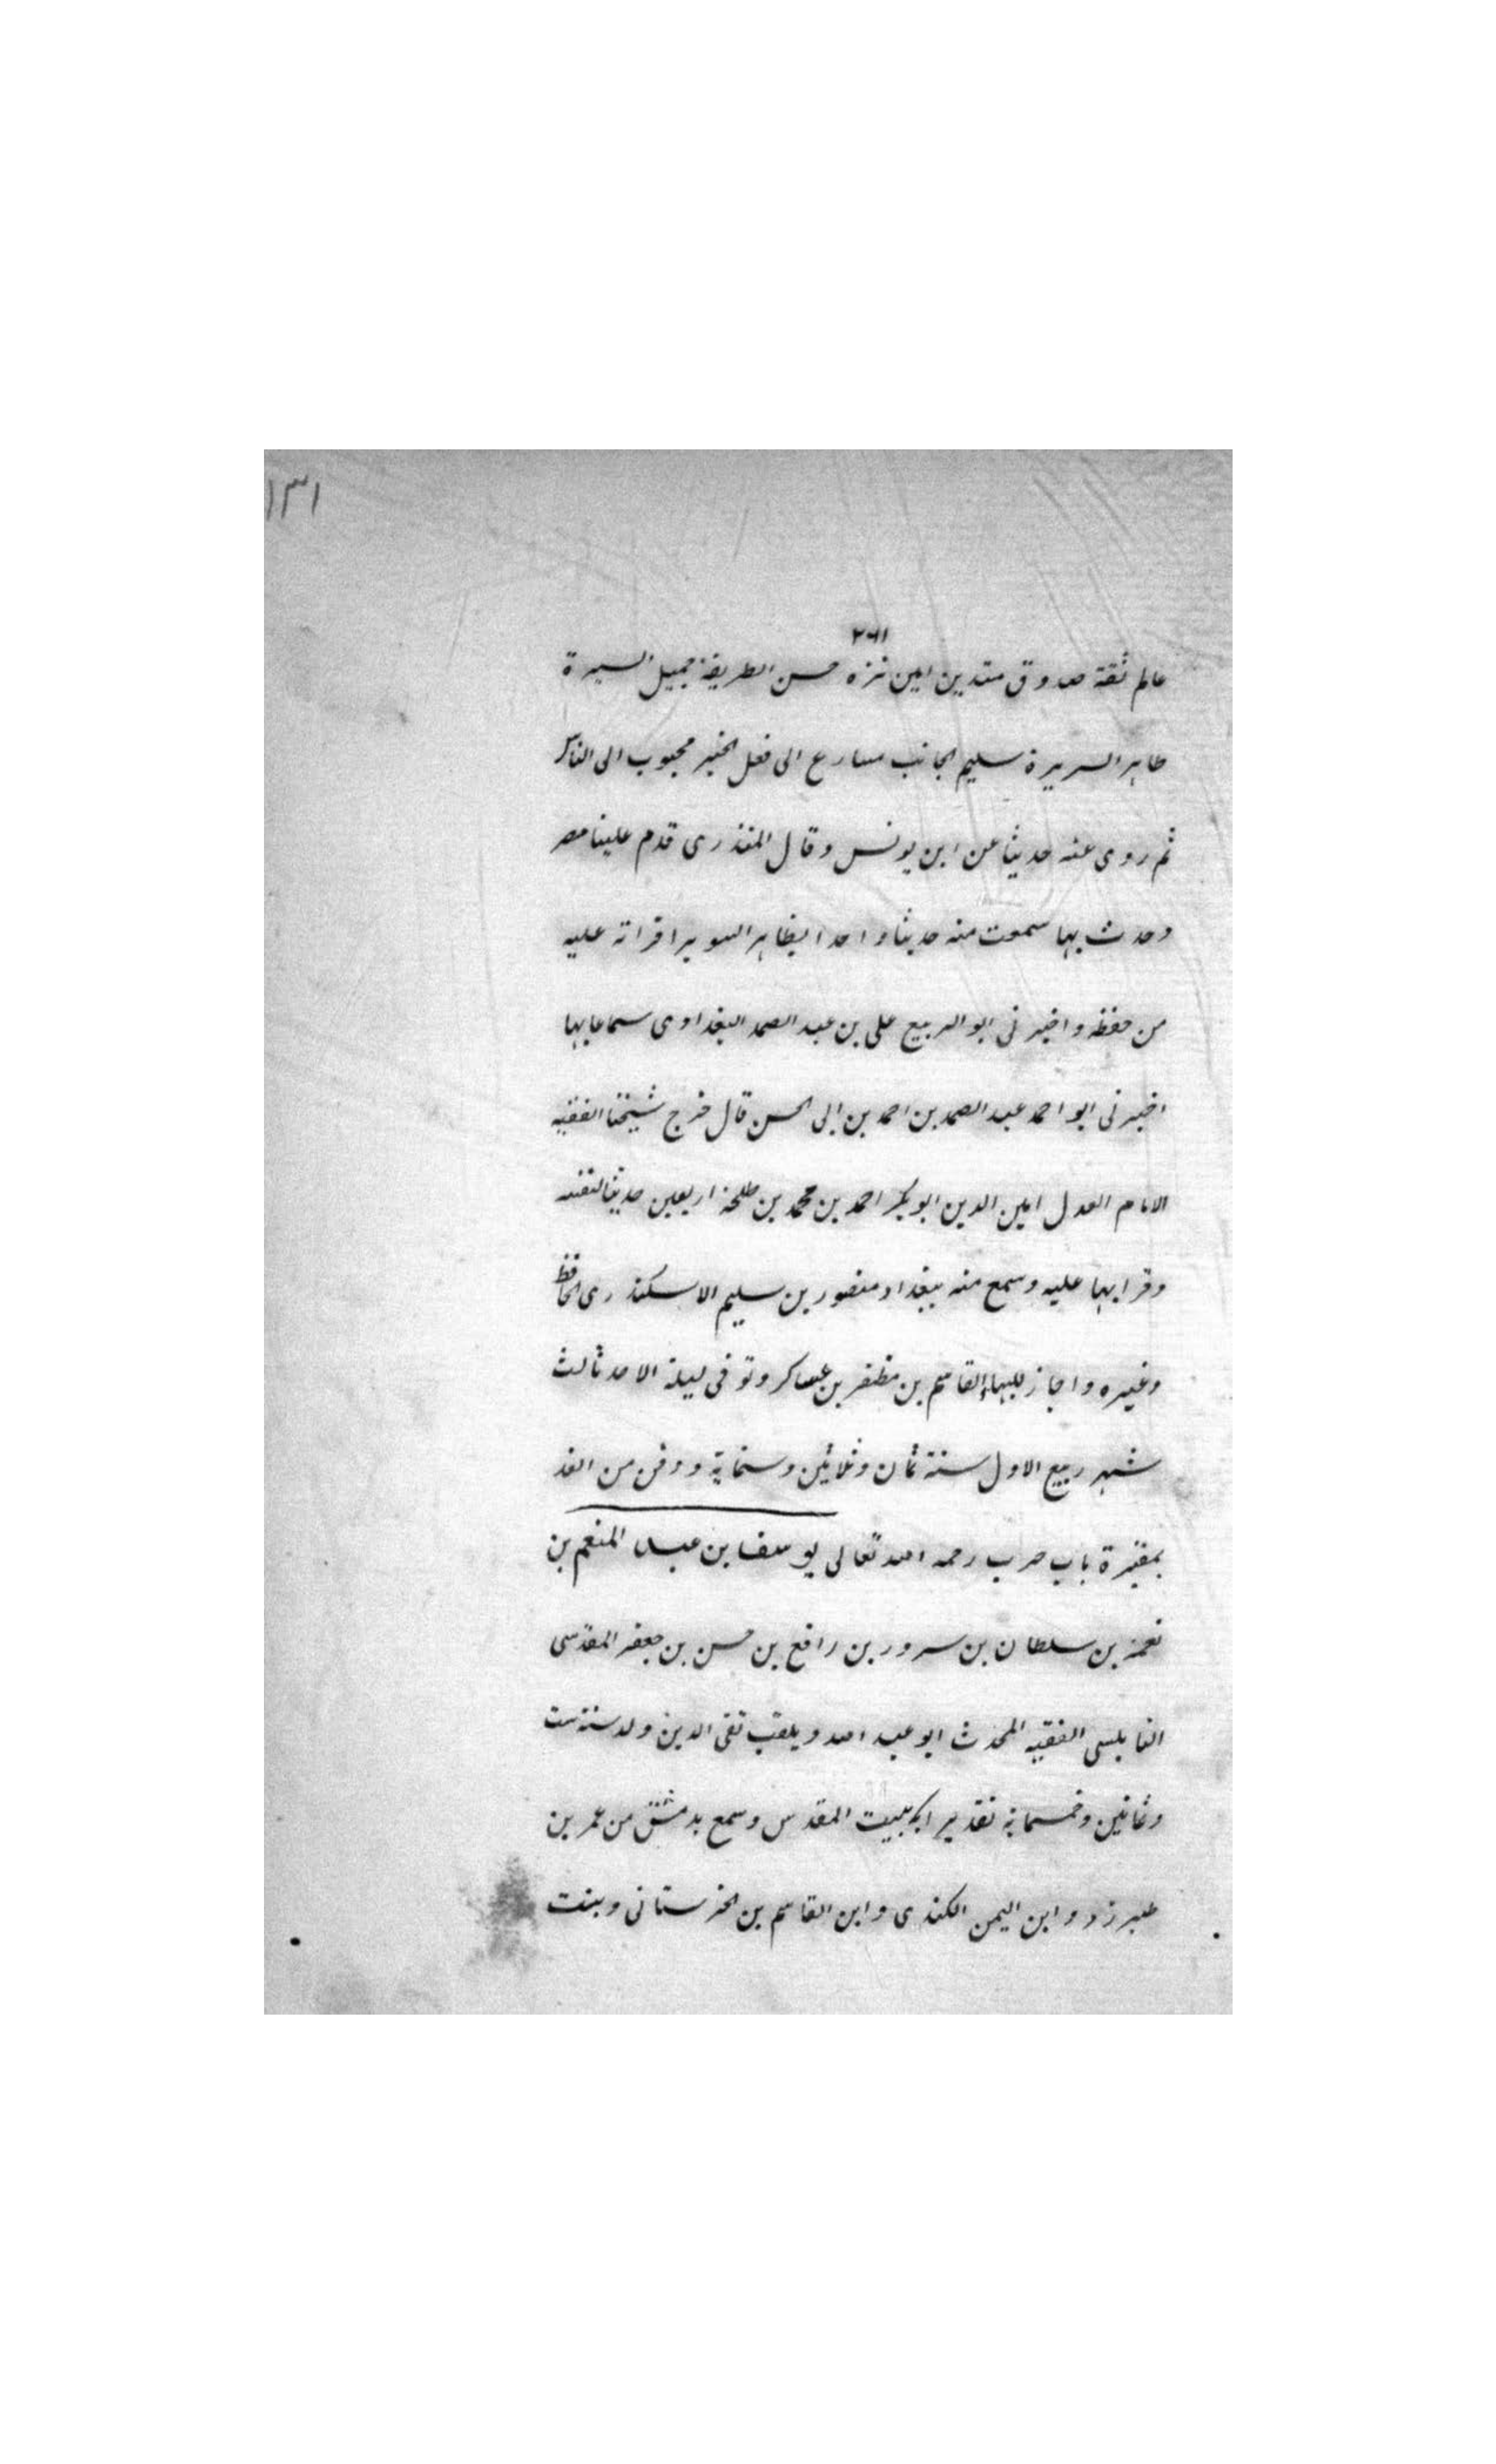 ١٣١
٢٦١
عالم ثقة صدوق متدين امين نزه حسن الطريقة جميل السيرة
طاهر السريرة سليم الجانب مسارع الى فعل الخير محبوب الى الناس
ثم روى عنه حديثا عن ابن يونس وقال المنذرى قدم علينا مصر
وحدث بها سمعت منه حديثا واحدا بظاهر السويدا قراته عليه
من حفظه واخبرنى ابو الربيع على بن عبد الصمد البغدادى سماعا بها
اخبرنى ابو احمد عبد الصمد بن احمد بن ابى الحسن قال خرج شيخنا الفقيه
الامام العدل امين الدين ابو بكر احمد بن محمد بن طلحة اربعين حديثا لنفسه
وقرا بها عليه وسمع منه ببغداد منصور بن سليم الاسكندرى الحافظ
وغيره واجاز للبهاء القاسم بن مظفر بن عساكر وتوفى ليلة الاحد ثالث
شهر ربيع الاول سنة ثمان وثلاثين وستماية ودفن من الغد
بمقبرة باب حرب رحمه الله تعالى يوسف بن عبد المنعم بن
نعمة بن سلطان بن سرور بن رافع بن حسن بن جعفر المقدسى
النابلسى الفقيه المحدث ابو عبد الله ويلقب تقى الدين ولد سنة ست
وثمانين وخمسماية تقديرا ببيت المقدس وسمع بدمشق من عمر بن
طبرزد وابن اليمن الكندى وابن القاسم بن الخرستانى وبنت